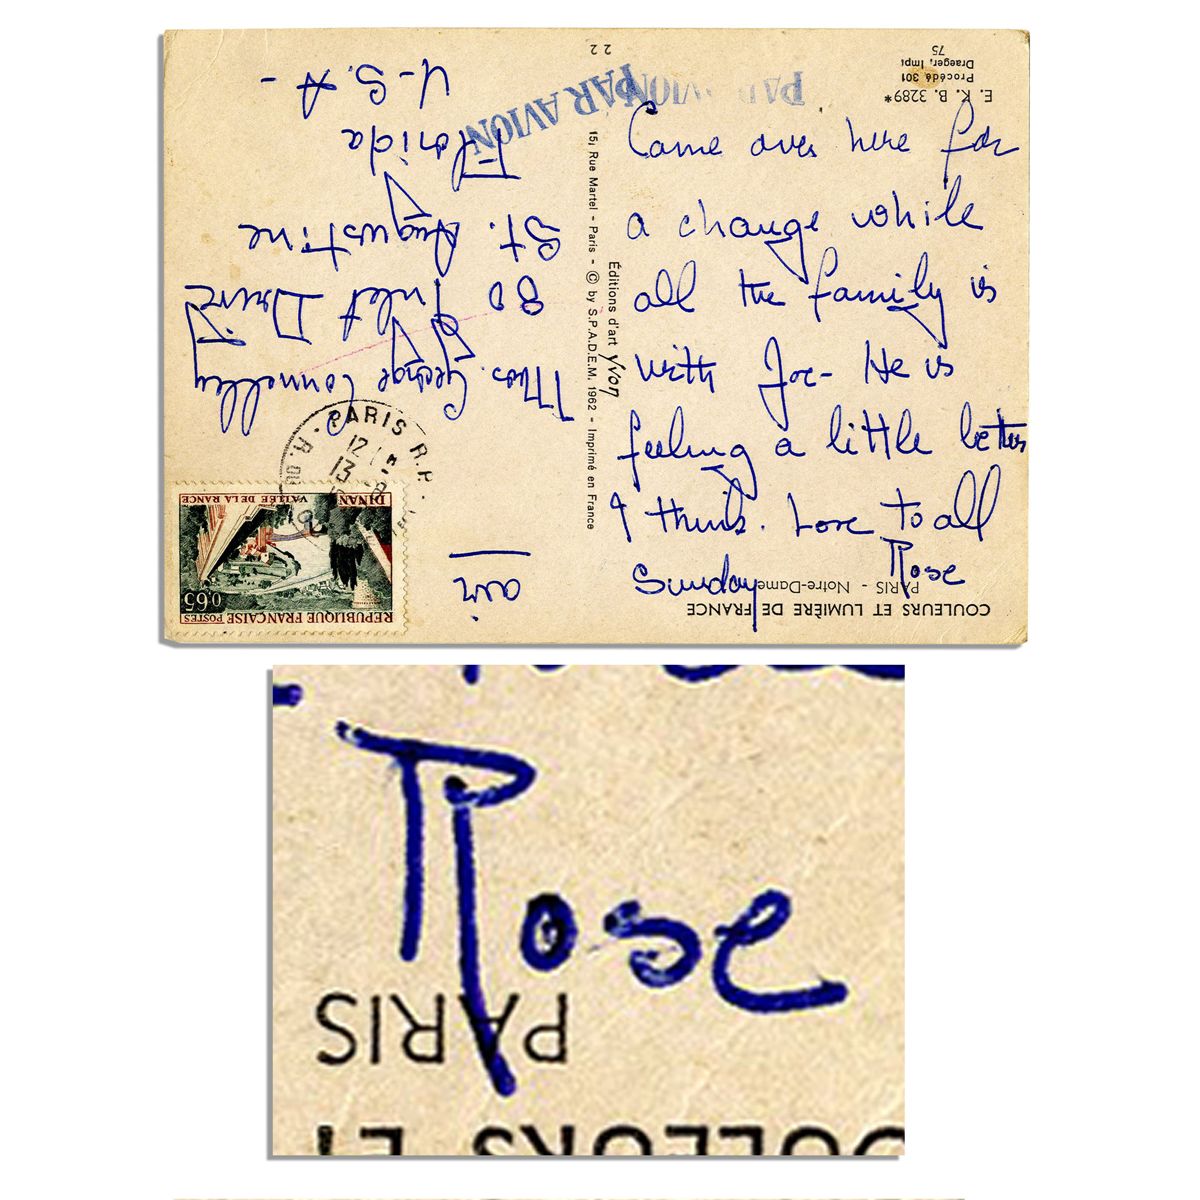 Came over here for
a change while
all the family is
with Joe - He is
feeling a little better
I think. Love to all
Rose
Sunday
air
Mrs. George Connelley
80 Inlet Drive
St. Augustine
Florida
U-S.A-
PAR AVION
PAR AVION
PAR AVION
E. K. B. 3289*
Procédé 301
Draeger, Impr
75
22
15, Rue Martel - Paris - © by S.P.A.D.E.M. 1962 - Imprimé en France
Éditions d'art Yvon
COULEURS ET LUMIÈRE DE FRANCE
PARIS - Notre-Dame
PARIS R.P.
12
13 -
REPUBLIQUE FRANÇAISE POSTES
0,65
DINAN
VALLÉE DE LA RANCE
Rose
PARIS
COULEURS ET